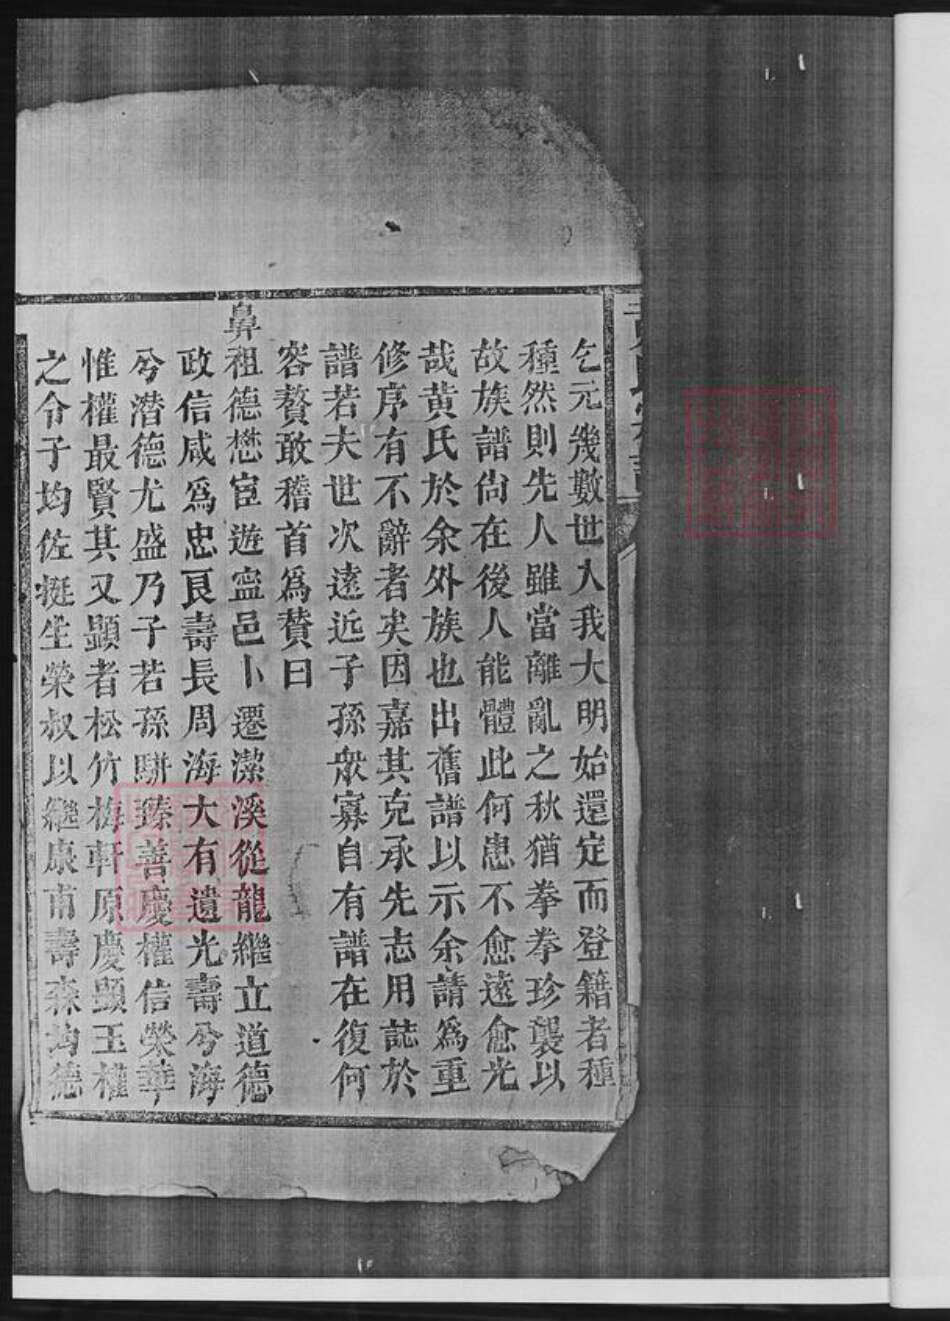 乞元幾數世入我大明始還定而登籍者種
種然則先人雖當離亂之秋猶拳拳珍襲以
故族譜尙在後人能體此何患不愈遠愈光
哉黄氏於余外族也出舊譜以示余請爲重
修序有不辭者矣因嘉其克承先志用誌於
譜若夫世次遠近子孫衆寡自有譜在復何
容贅敢稽首爲贊曰
鼻祖德懋宦遊寧邑卜遷潔溪從龍繼立道德
政信咸爲忠良壽長周海大有遺光壽兮海
兮潛德尤盛乃子若孫駢臻善慶權信榮華
惟權最賢其又顯者松竹梅軒原慶顯玉權
之令子均佐挺生榮叔以繼康甫壽森均德